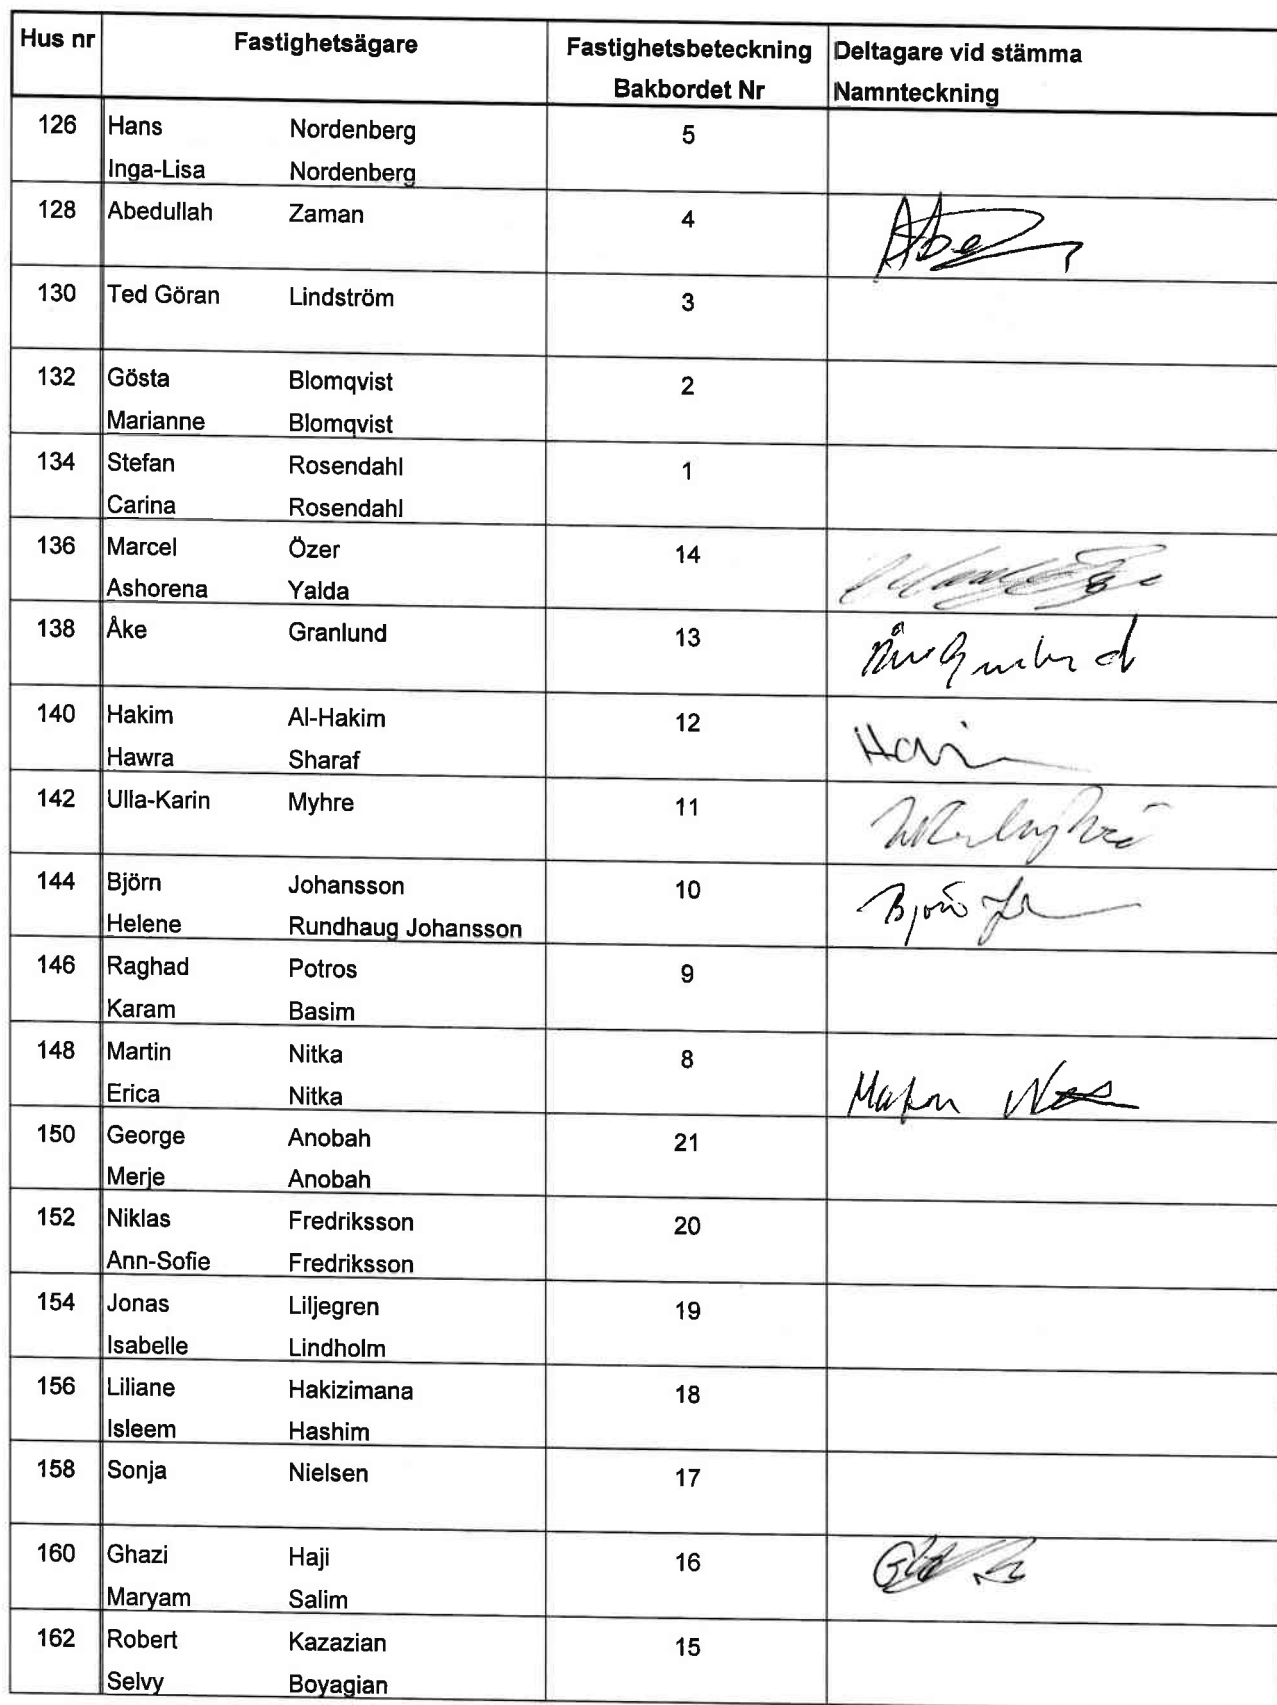 Hus nr Fastighetsägare Fastighetsbeteckning Deltagare vid stämma
Bakbordet Nr Namnteckning
126 Hans Nordenberg 5
Inga-Lisa Nordenberg
128 Abedullah Zaman 4
130 Ted Göran Lindström 3
132 Gösta Blomqvist 2
Marianne Blomqvist
134 Stefan Rosendahl 1
Carina Rosendahl
136 Marcel Özer 14
Ashorena Yalda
138 Åke Granlund 13
140 Hakim Al-Hakim 12
Hawra Sharaf
142 Ulla-Karin Myhre 11
144 Björn Johansson 10
Helene Rundhaug Johansson
146 Raghad Potros 9
Karam Basim
148 Martin Nitka 8
Erica Nitka
150 George Anobah 21
Merje Anobah
152 Niklas Fredriksson 20
Ann-Sofie Fredriksson
154 Jonas Liljegren 19
Isabelle Lindholm
156 Liliane Hakizimana 18
Isleem Hashim
158 Sonja Nielsen 17
160 Ghazi Haji 16
Maryam Salim
162 Robert Kazazian 15
Selvy Boyagian